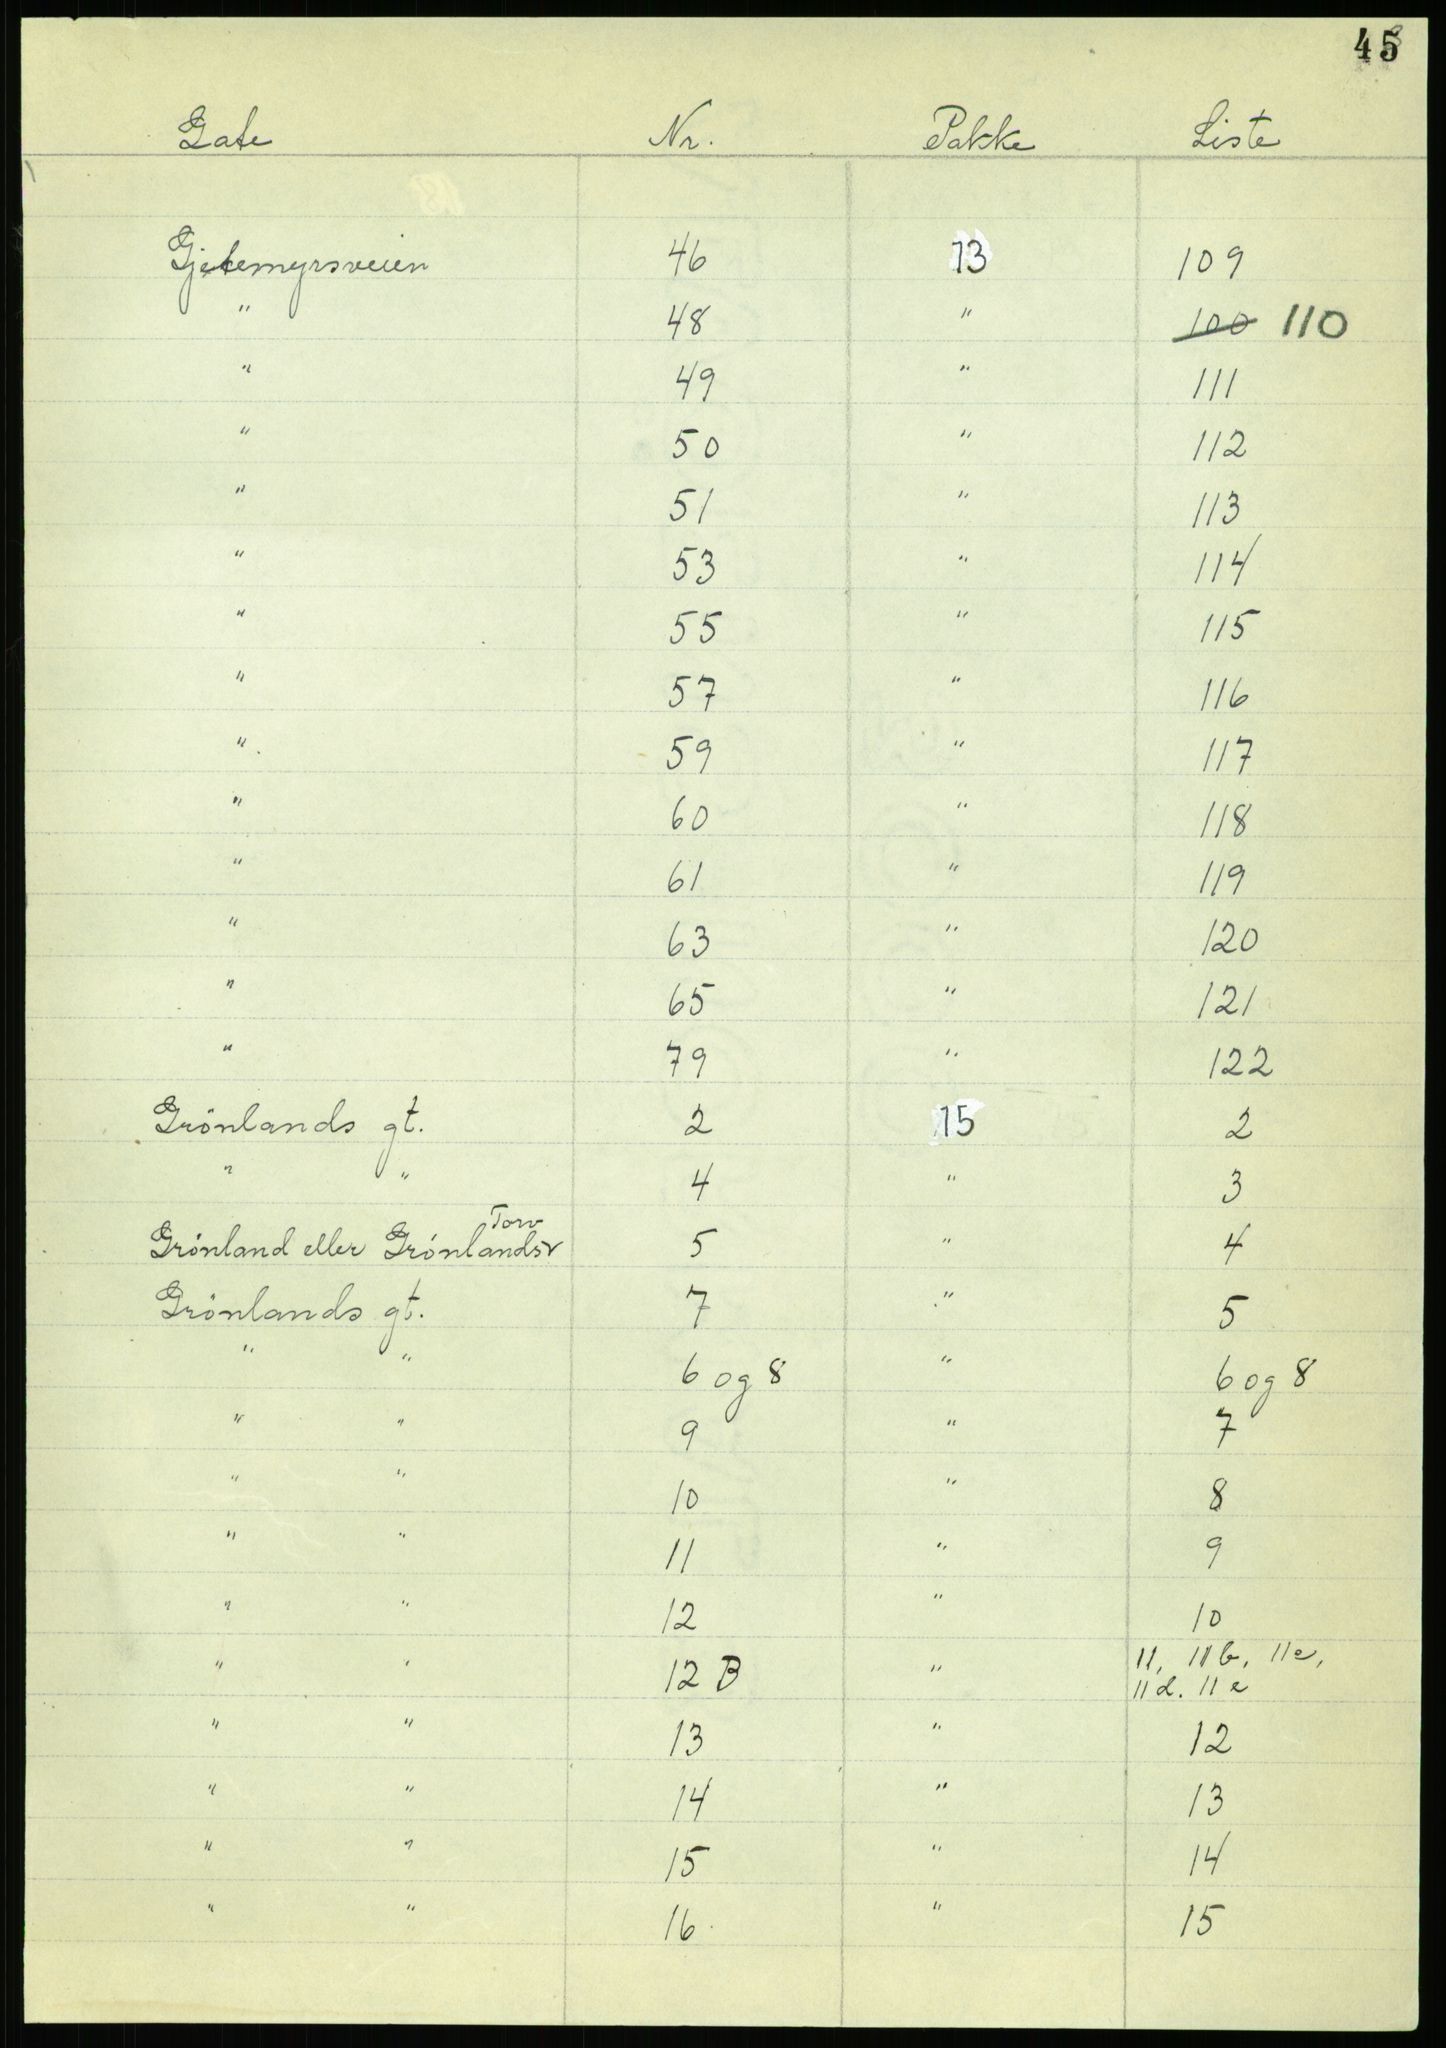 45
Gate Nr. Pakke Liste
Gjetemyrsveien 46 13 109
" 48 " 100 110
" 49 " 111
" 50 " 112
" 51 " 113
" 53 " 114
" 55 " 115
" 57 " 116
" 59 " 117
" 60 " 118
" 61 " 119
" 63 " 120
" 65 " 121
" 79 " 122
Grönlands gt. 2 15 2
" " 4 " 3
Torv
Grönland eller Grönlands 5 " 4
Grönlands gt. 7 " 5
" " 6 og 8 " 6 og 8
" " 9 " 7
" " 10 " 8
" " 11 " 9
" " 12 " 10
" " 12 B " 11, 11b, 11c,
11d. 11e
" " 13 " 12
" " 14 " 13
" " 15 " 14
" " 16 " 15